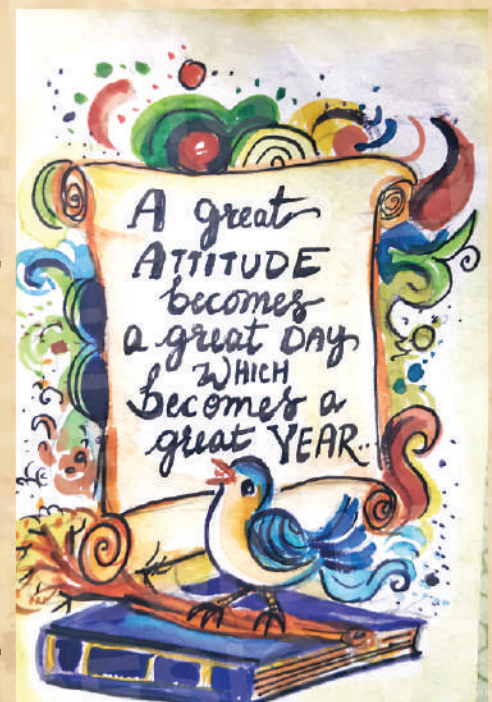 A great
ATTITUDE
becomes
a great DAY
WHICH
becomes a
great YEAR..